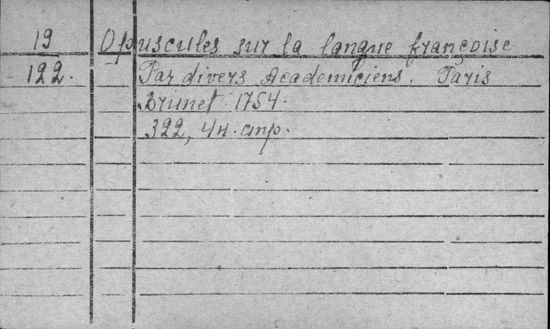 19 Opuscules sur la langue françoise
122. Par divers Academiciens. Paris
Brunet 1754.
322, 4н. стр.